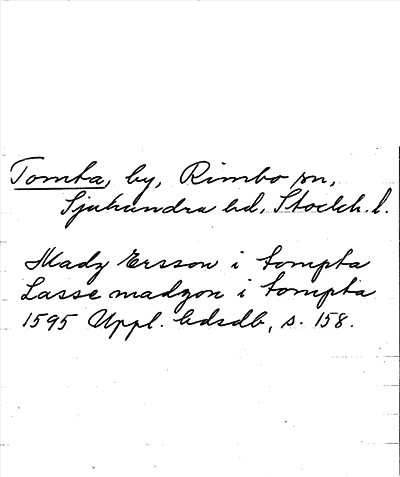 Tomta, by, Rimbo sn,
Sjuhundra hd, Stockh. l.
Madz Ersson i tompta
Lasse madzon i tompta
1595 Uppl. hdsdb, s. 158.